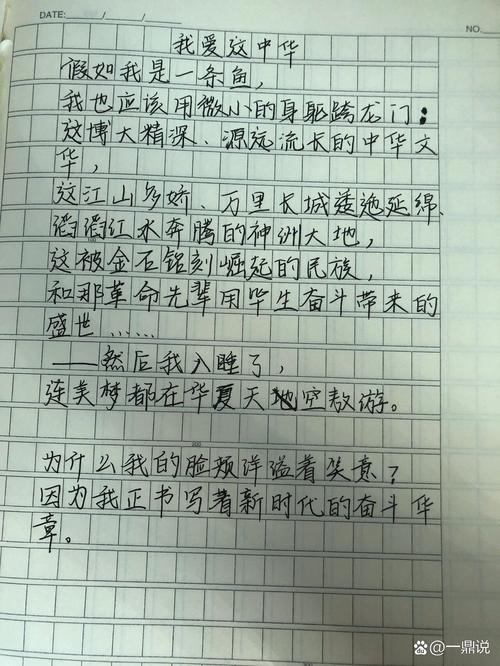 DATE: / /
NO.
我爱这中华
假如我是一条鱼，
我也应该用微小的身躯跨龙门；
这博大精深、源远流长的中华文
华，
这江山多娇、万里长城逶迤延绵、
滔滔江水奔腾的神洲大地，
这被金石铭刻崛起的民族，
和那革命先辈用毕生奋斗带来的
盛世……
——然后我入睡了，
连美梦都在华夏天地空敖游。
为什么我的脸颊洋溢着笑意？
因为我正书写着新时代的奋斗华
章。
百一鼎说